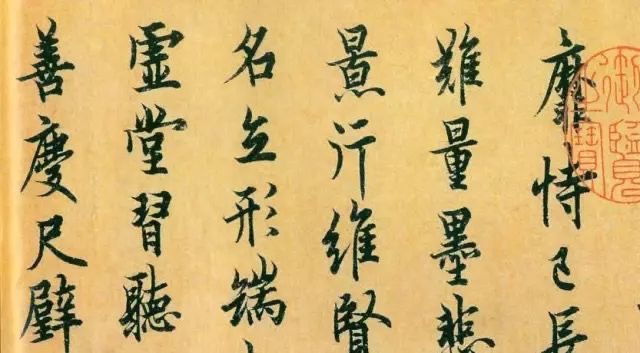 靡恃己長
難量墨悲
景行維賢
名立形端
虛堂習聽
善慶尺璧
御覽之寶